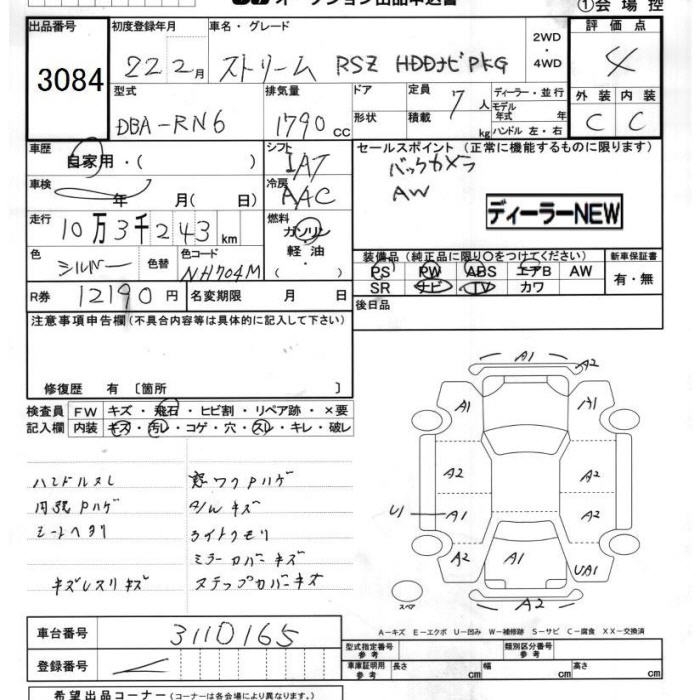 オークション出品申込書 ①会場控
出品番号 初度登録年月 車名・グレード 2WD・4WD 評価点
3084 22 2月 ストリーム RSZ HDDナビPKG 4
型式 排気量 ドア 定員 7人 ディーラー・並行 外装 内装
DBA-RN6 1790 cc 形状 積載 kg モデル年式 年 ハンドル 左・右 C C
車歴 自家用・( ) シフト IAT セールスポイント (正常に機能するものに限ります)
車検 年 月( 日) 冷房 AAC バックカメラ
AW
ディーラーNEW
走行 10万3千243 km 燃料 ガソリン 軽油 ( )
色 シルバー 色替 色コード NH704M
装備品 (純正品に限り〇をつけてください) 新車保証書
PS PW ABS エアB AW 有・無
SR ナビ TV カワ
R券 12190円 名変期限 月 日 後日品
注意事項申告欄 (不具合内容等は具体的に記入して下さい)
修復歴 有 〔箇所 〕
検査員 FW キズ・飛石・ヒビ割・リペア跡・×要
記入欄 内装 キズ・汚レ・コゲ・穴・スレ・キレ・破レ
ハンドルスレ 窓ワクPハゲ
内張Pハゲ A/Wキズ
シートヘタリ ライトクモリ
ミラーカバーキズ
キズレスリキズ ステップカバーキズ
A1 A2
A1 A1
A2 A2
U1 A1 A2
A2 A1 UA1
A2
スペア
A-キズ E-エクボ U-凹み W-補修跡 S-サビ C-腐食 XX-交換済
車台番号 3110165
登録番号
型式指定番号 参考 類別区分番号 参考
車庫証明用 参考 長さ cm 幅 cm 高さ cm
希望出品コーナー (コーナーは各会場により異なります。)